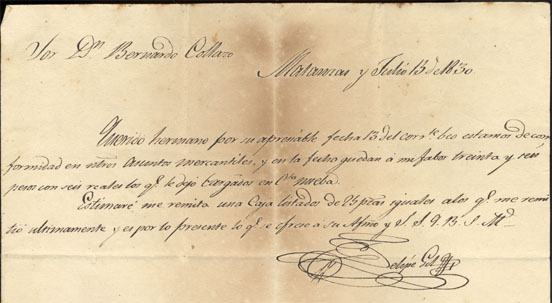 Sor Dn Bernardo Collazo
Matanzas y Julio 15 de 1830
Querido hermano por su apreciable fecha 13 del corrte beo estamos de con
formidad en ntros asuntos mercantiles, y en la fecha quedan á mi fabor treinta y seis
pesos con seis reales los qe le dejo cargados en Cta nueba.
Estimaré me remita una Caja listados de 25 pzas iguales a los qe me remi
tió ultimamente y es por lo presente lo qe se ofrese a su Afmo y S. S. Q. B. S. Ms
Felipe Gil